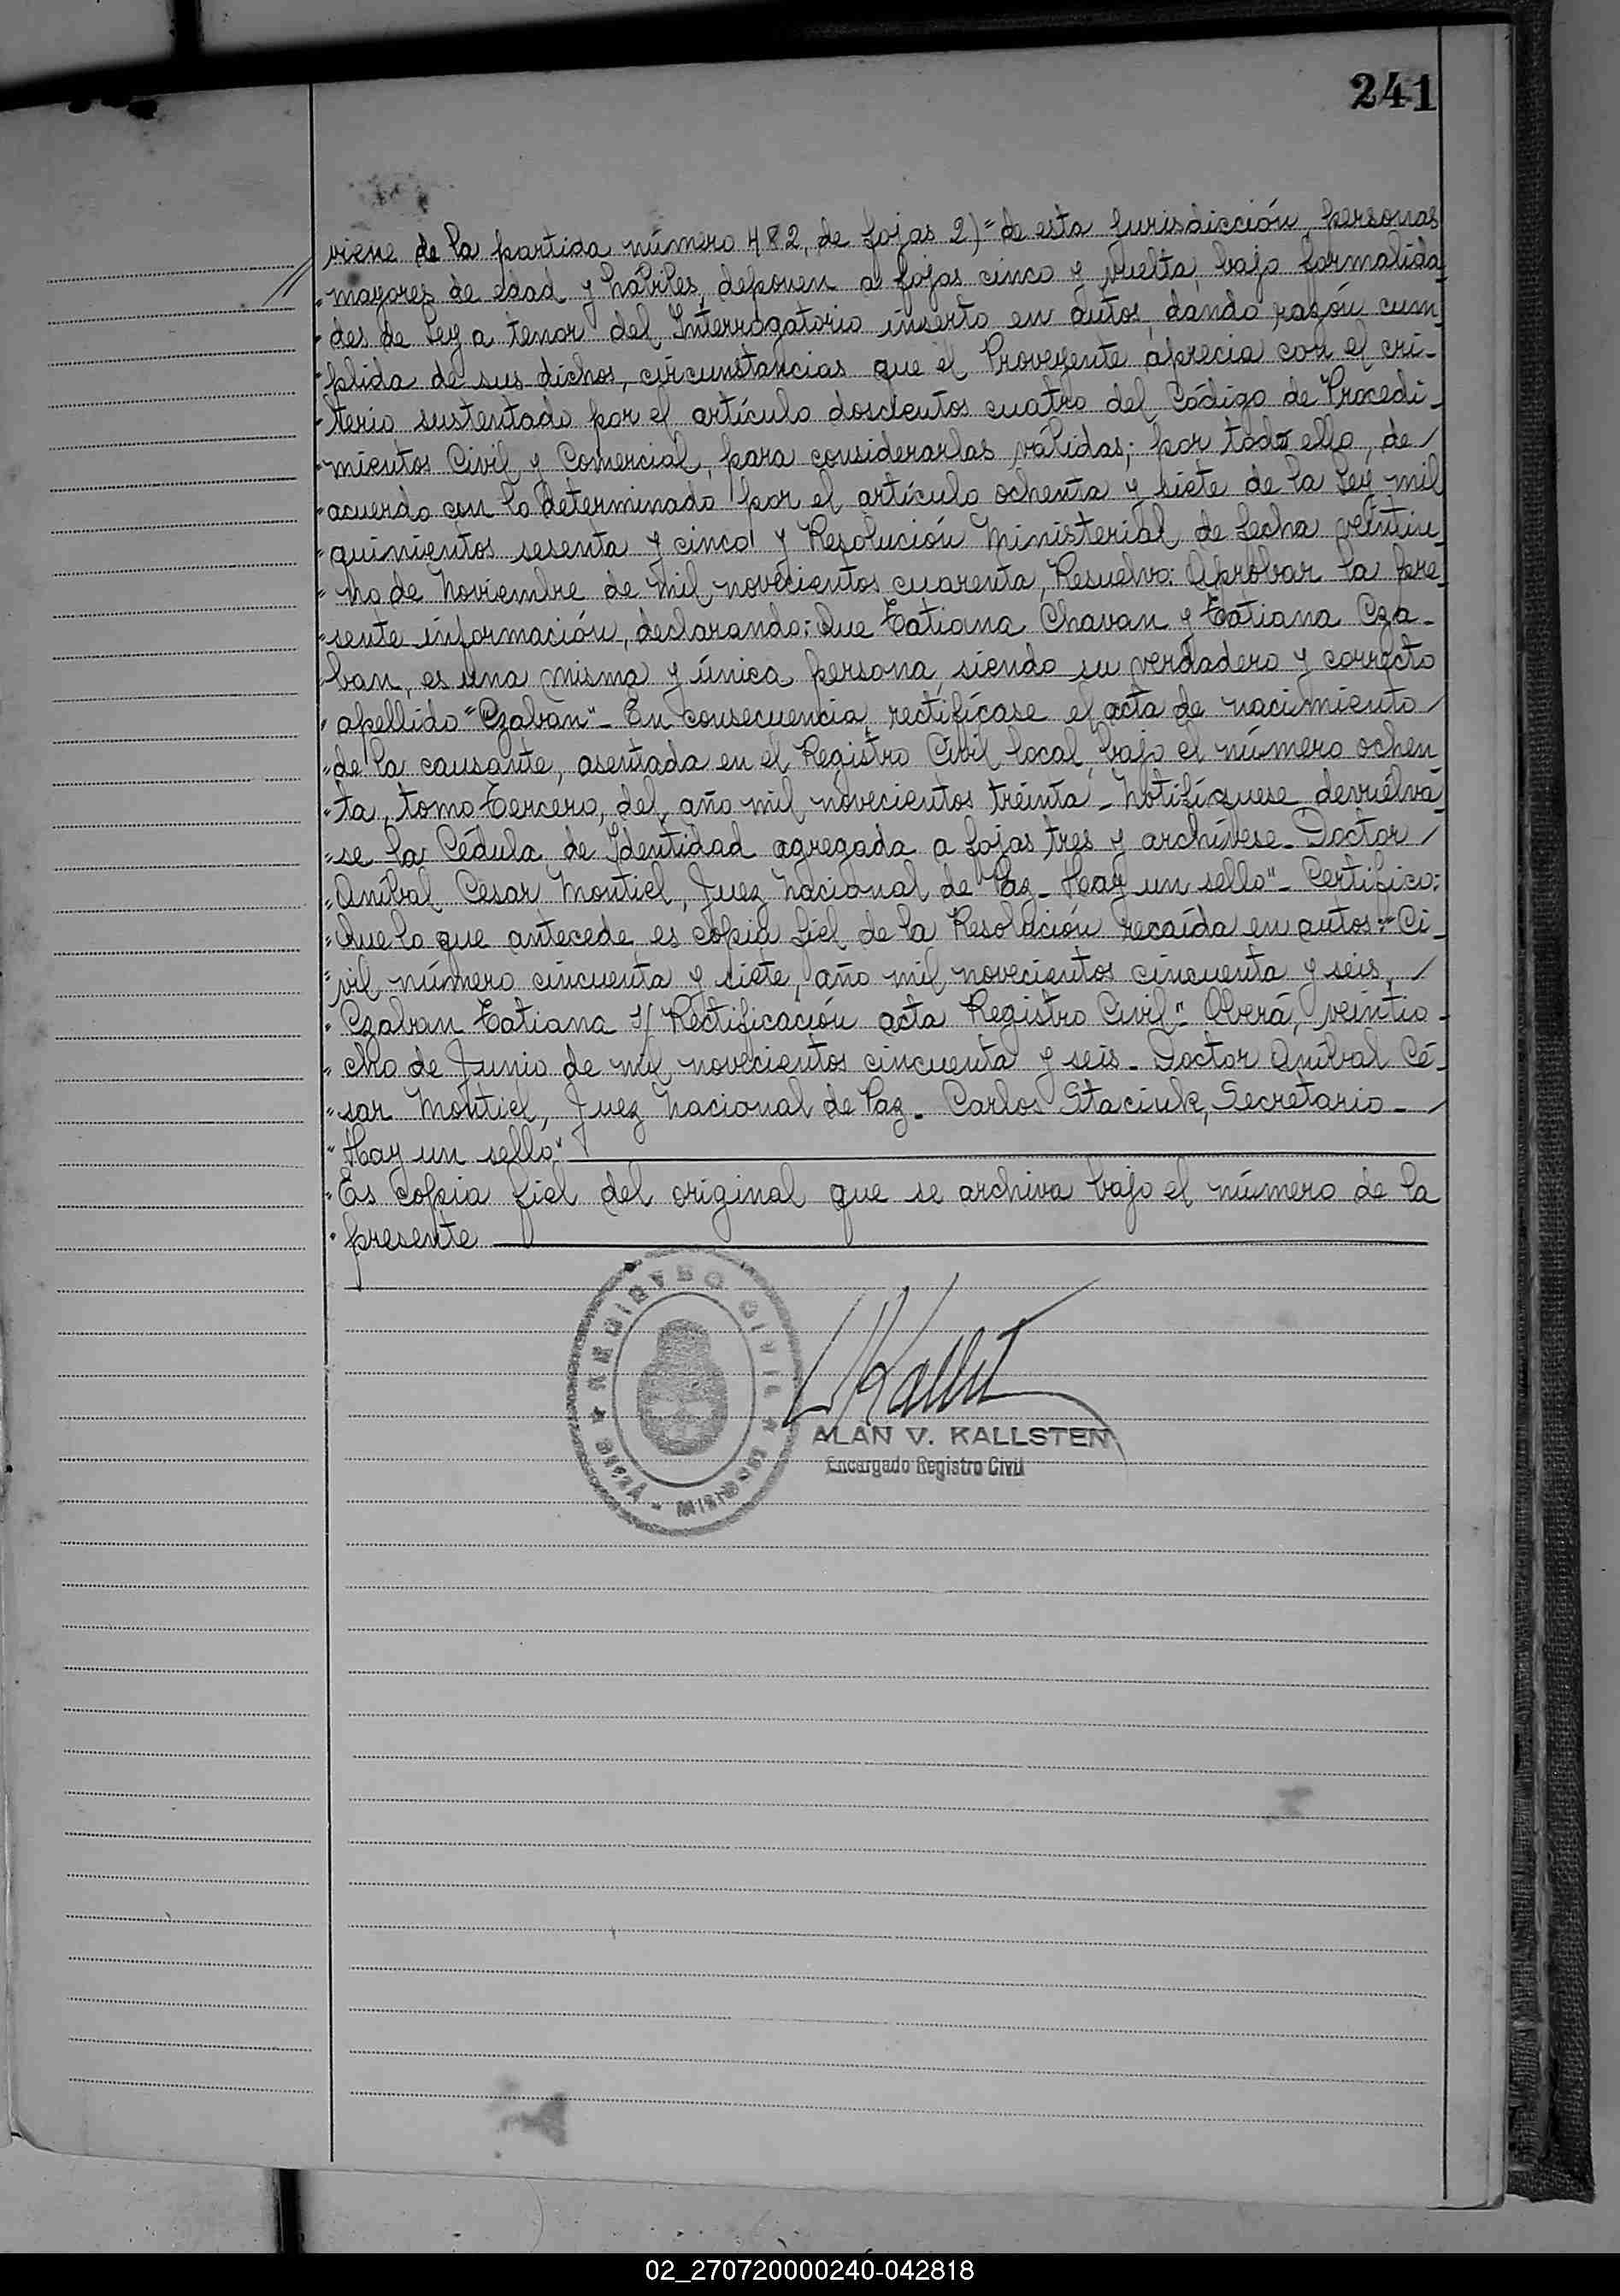 241
viene de la partida número 482, de fojas 2)= de esta Jurisdicción, personas
"mayores de edad y hábiles, deponen a fojas cinco y vuelta, bajo formalida-
"des de Ley a tenor del Interrogatorio inserto en autos, dando razón cum-
"plida de sus dichos, circunstancias que el Proveyente aprecia con el cri-
"terio sustentado por el artículo doscientos cuatro del Código de Procedi-
"mientos Civil y Comercial, para considerarlas válidas; por todo ello, de /
"acuerdo con lo determinado por el artículo ochenta y siete de la Ley mil
"quinientos sesenta y cinco y Resolución Ministerial de fecha veintiu-
"no de Noviembre de mil novecientos cuarenta, Resuelvo: Aprobar la pre-
"sente información, declarando: Que Tatiana Chavan y Tatiana Cza-
ban, es una misma y única persona, siendo su verdadero y correcto
"apellido "Czaban"_ En consecuencia, rectifícase el acta de nacimiento /
"de la causante, asentada en el Registro Civil local, bajo el número ochen
"ta, tomo Tercero, del año mil novecientos treinta_ Notifíquese, devuélva-
"se la Cédula de Identidad agregada a fojas tres y archívese_ Doctor /
"Aníbal César Montiel, Juez Nacional de Paz_ Hay un sello"_ Certifico:
"Que lo que antecede es copia fiel de la Resolución recaída en autos:"Ci-
"vil número cincuenta y siete, año mil novecientos cincuenta y seis, /
"Czaban Tatiana s/ Rectificación acta Registro Civil"_ Oberá, veintio-
"cho de Junio de mil novecientos cincuenta y seis_ Doctor Aníbal Cé-
"sar Montiel, Juez Nacional de Paz_ Carlos Staciuk, Secretario_ /
"Hay un sello"
"Es copia fiel del original que se archiva bajo el número de la
"presente
REGISTRO CIVIL
OBERÁ - MISIONES
ALAN V. KALLSTEN
Encargado Registro Civil
02_270720000240-042818